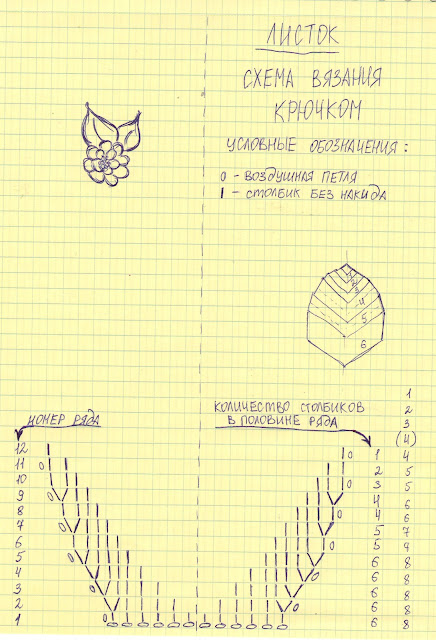 ЛИСТОК
СХЕМА ВЯЗАНИЯ
КРЮЧКОМ
УСЛОВНЫЕ ОБОЗНАЧЕНИЯ:
0 - ВОЗДУШНАЯ ПЕТЛЯ
I - СТОЛБИК БЕЗ НАКИДА
4
5
6
1
2
3
(4)
НОМЕР РЯДА
КОЛИЧЕСТВО СТОЛБИКОВ
В ПОЛОВИНЕ РЯДА
12 1 4
11 2 5
10 3 5
9 4 6
8 4 6
7 5 7
6 5 7
5 6 8
4 6 8
3 6 8
2 6 8
1 6 8